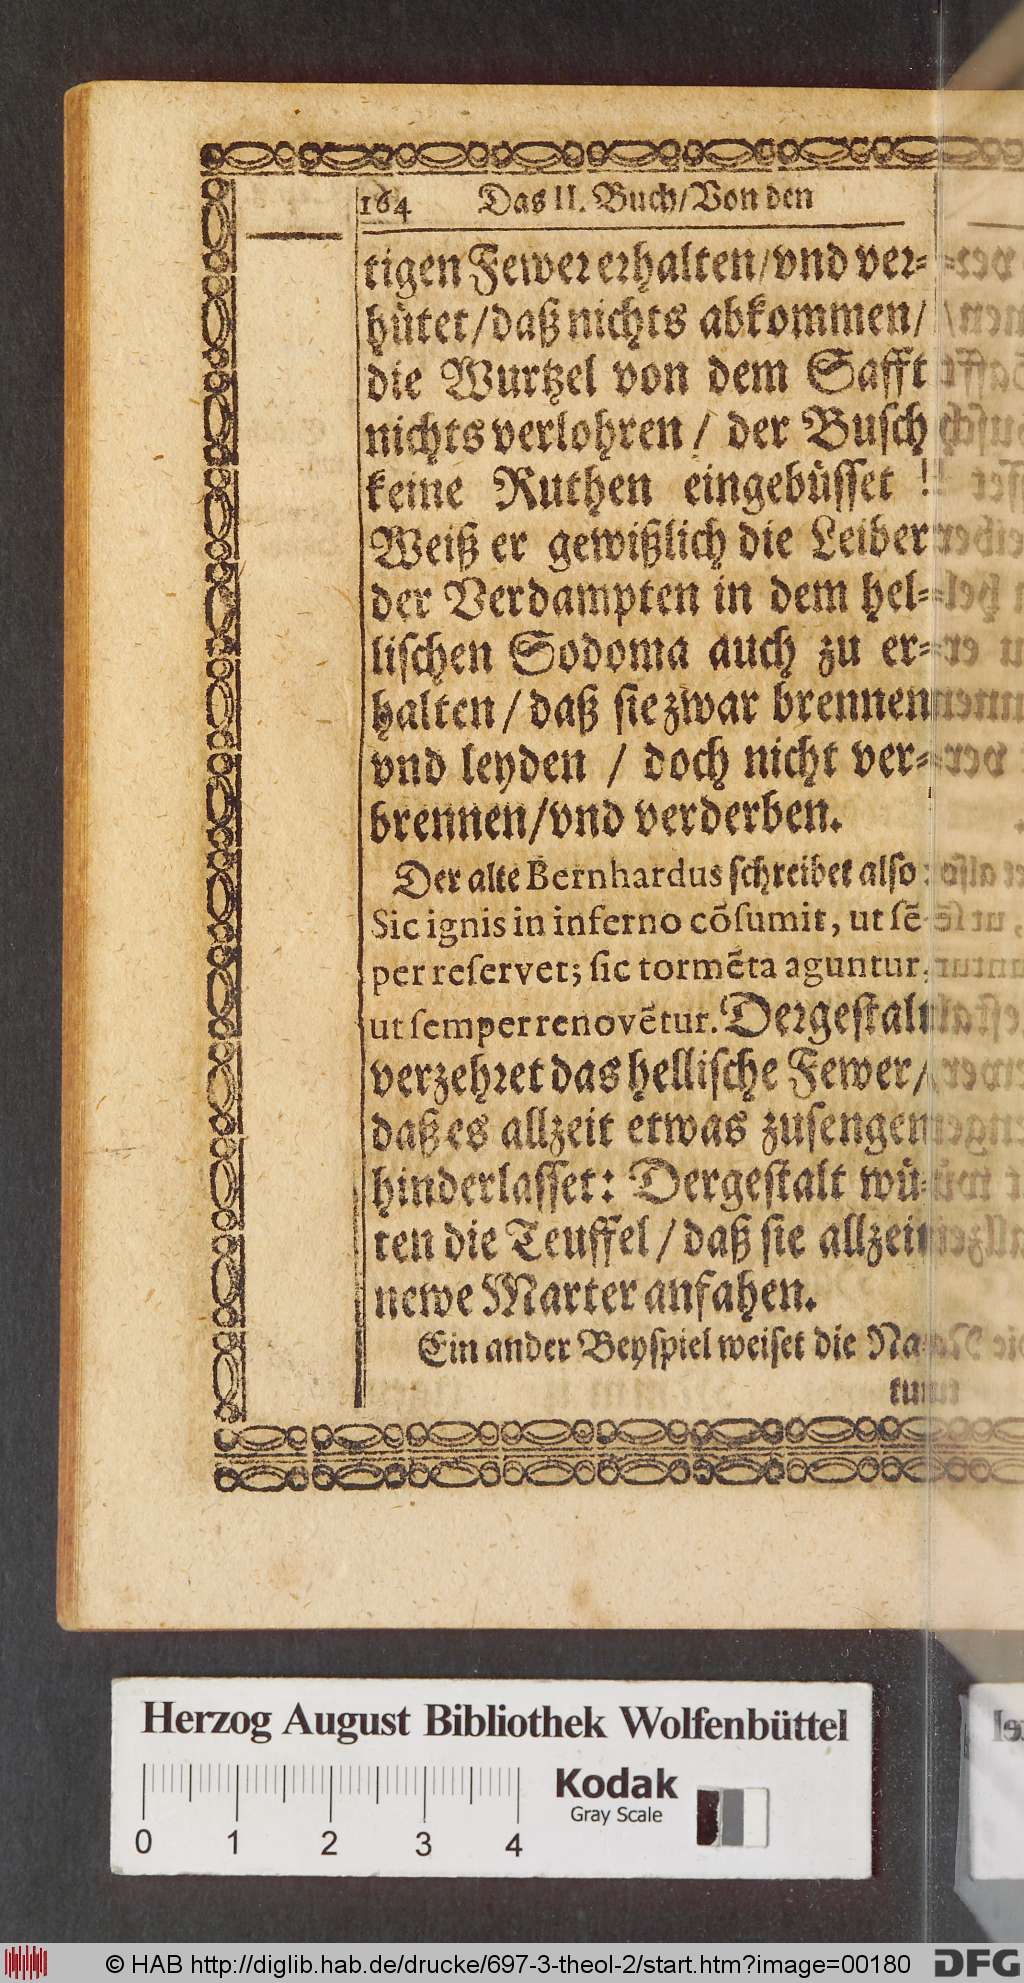 164 Das II. Buch/Von den
tigen Fewer erhalten/vnd ver-
hütet/daß nichts abkommen/
die Wurtzel von dem Safft
nichts verlohren / der Busch
keine Ruthen eingebüsset !
Weiß er gewißlich die Leiber
der Verdampten in dem hel-
lischen Sodoma auch zu er-
halten / daß sie zwar brennen
vnd leyden / doch nicht ver-
brennen/vnd verderben.
Der alte Bernhardus schreibet also:
Sic ignis in inferno cõsumit, ut sẽ-
per reservet; sic tormẽta aguntur,
ut semper renovẽtur. Dergestalt
verzehret das hellische Fewer/
daß es allzeit etwas zusengen
hinderlasset: Dergestalt wü-
ten die Teuffel / daß sie allzeit
newe Marter anfahen.
Ein ander Beyspiel weiset die Na-
tuur
Herzog August Bibliothek Wolfenbüttel
Kodak
Gray Scale
0 1 2 3 4
© HAB http://diglib.hab.de/drucke/697-3-theol-2/start.htm?image=00180 DFG